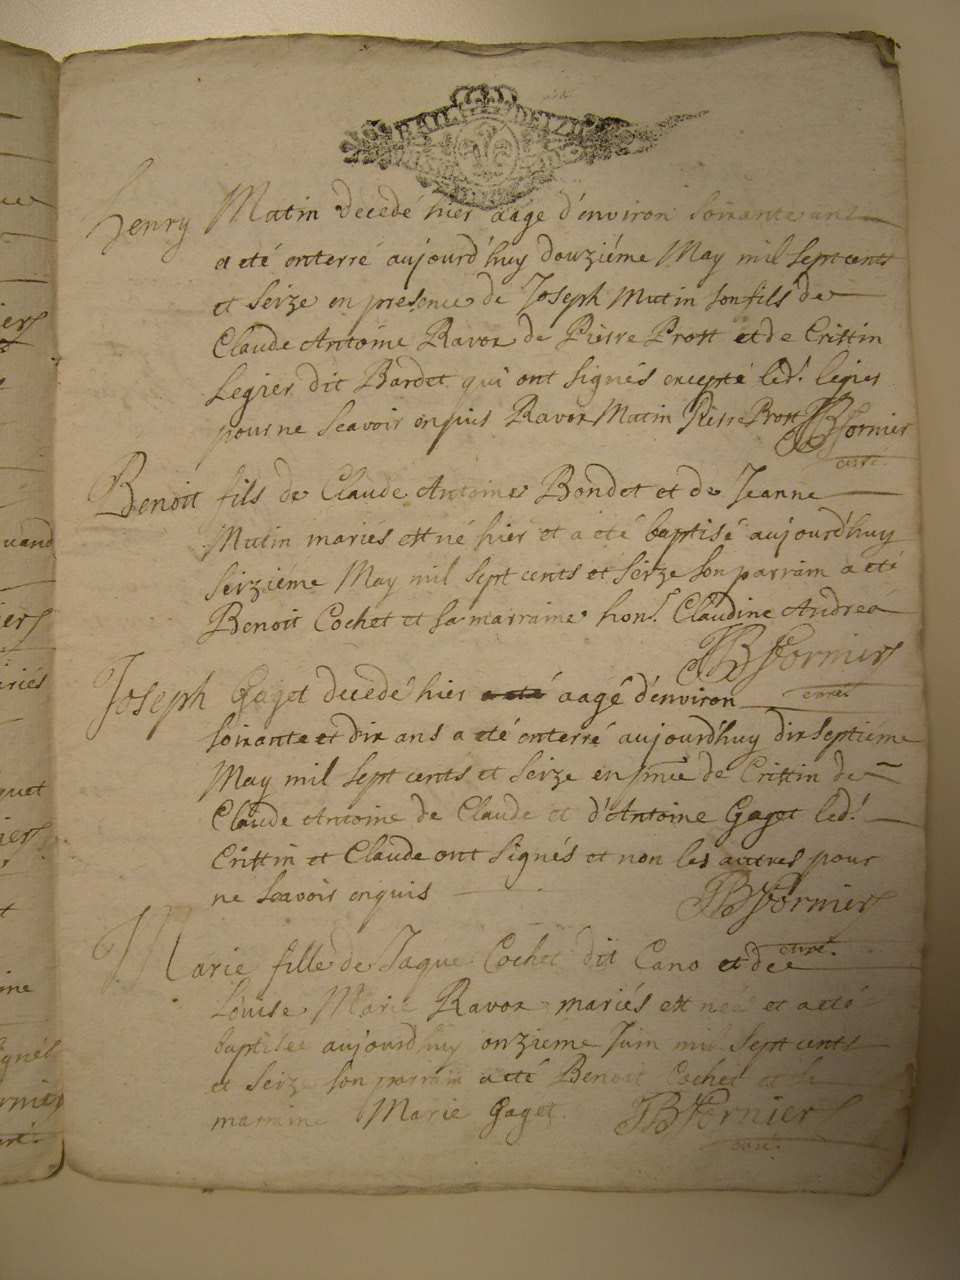 Henry Matin decedé hier aagé d'environ soixante ans
a eté enterré aujourd'huy douziéme May mil sept cents
et seize en presence de Joseph Matin son fils de
Claude Antoine Ravoz de Pierre Prost et de Cristin
Legier dit Bardet qui ont signés excepté led. legier
pour ne scavoir enquis Ravoz Matin Pierre Prost JB fornier
curé.
Benoit fils de Claude Antoine Bondet et de Jeanne
Matin mariés est né hier et a eté baptisé aujourd'huy
seiziéme May mil sept cents et seize son parrain a eté
Benoit Cochet et sa marraine hon. Claudine Andrea
JB fornier
curé
Joseph Gaget decedé hier a eté aagé d'environ
soixante et dix ans a eté enterré aujourd'huy dix septiéme
May mil sept cents et seize en pnce de Cristin de
Claude Antoine de Claude et d'Antoine Gaget led.
Cristin et Claude ont signés et non les autres pour
ne scavoir enquis JB fornier
curé.
Marie fille de Jaque Cochet dit Cano et de
Louise Marie Ravoz mariés est née et a eté
baptisée aujourd'huy onzieme Juin mil sept cents
et seize son parrain a eté Benoit Cochet et sa
marraine Marie Gaget. JB fornier
curé.